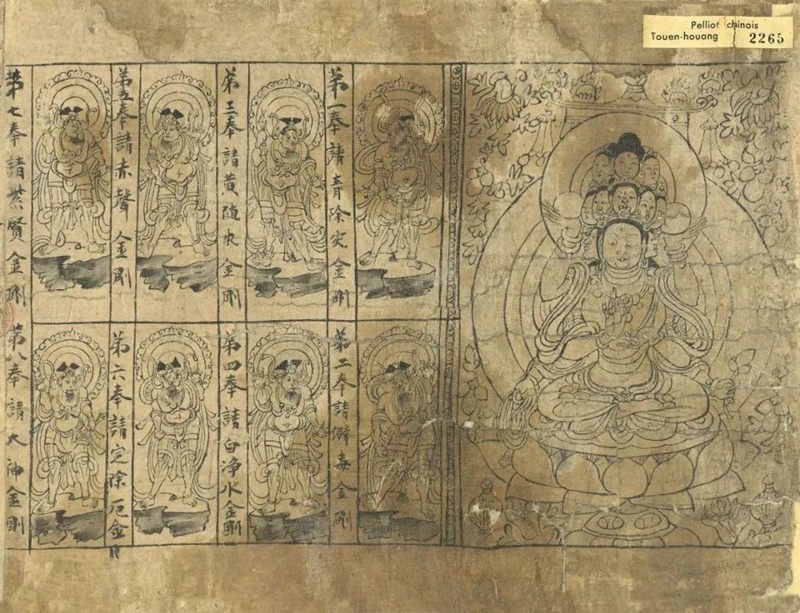 Pelliot chinois
Touen-houang 2265
第一奉請青除灾金剛
第二奉請僻毒金剛
第三奉請黄随求金剛
第四奉請白净水金剛
第五奉請赤聲金剛
第六奉請定除厄金剛
第七奉請紫賢金剛
第八奉請大神金剛